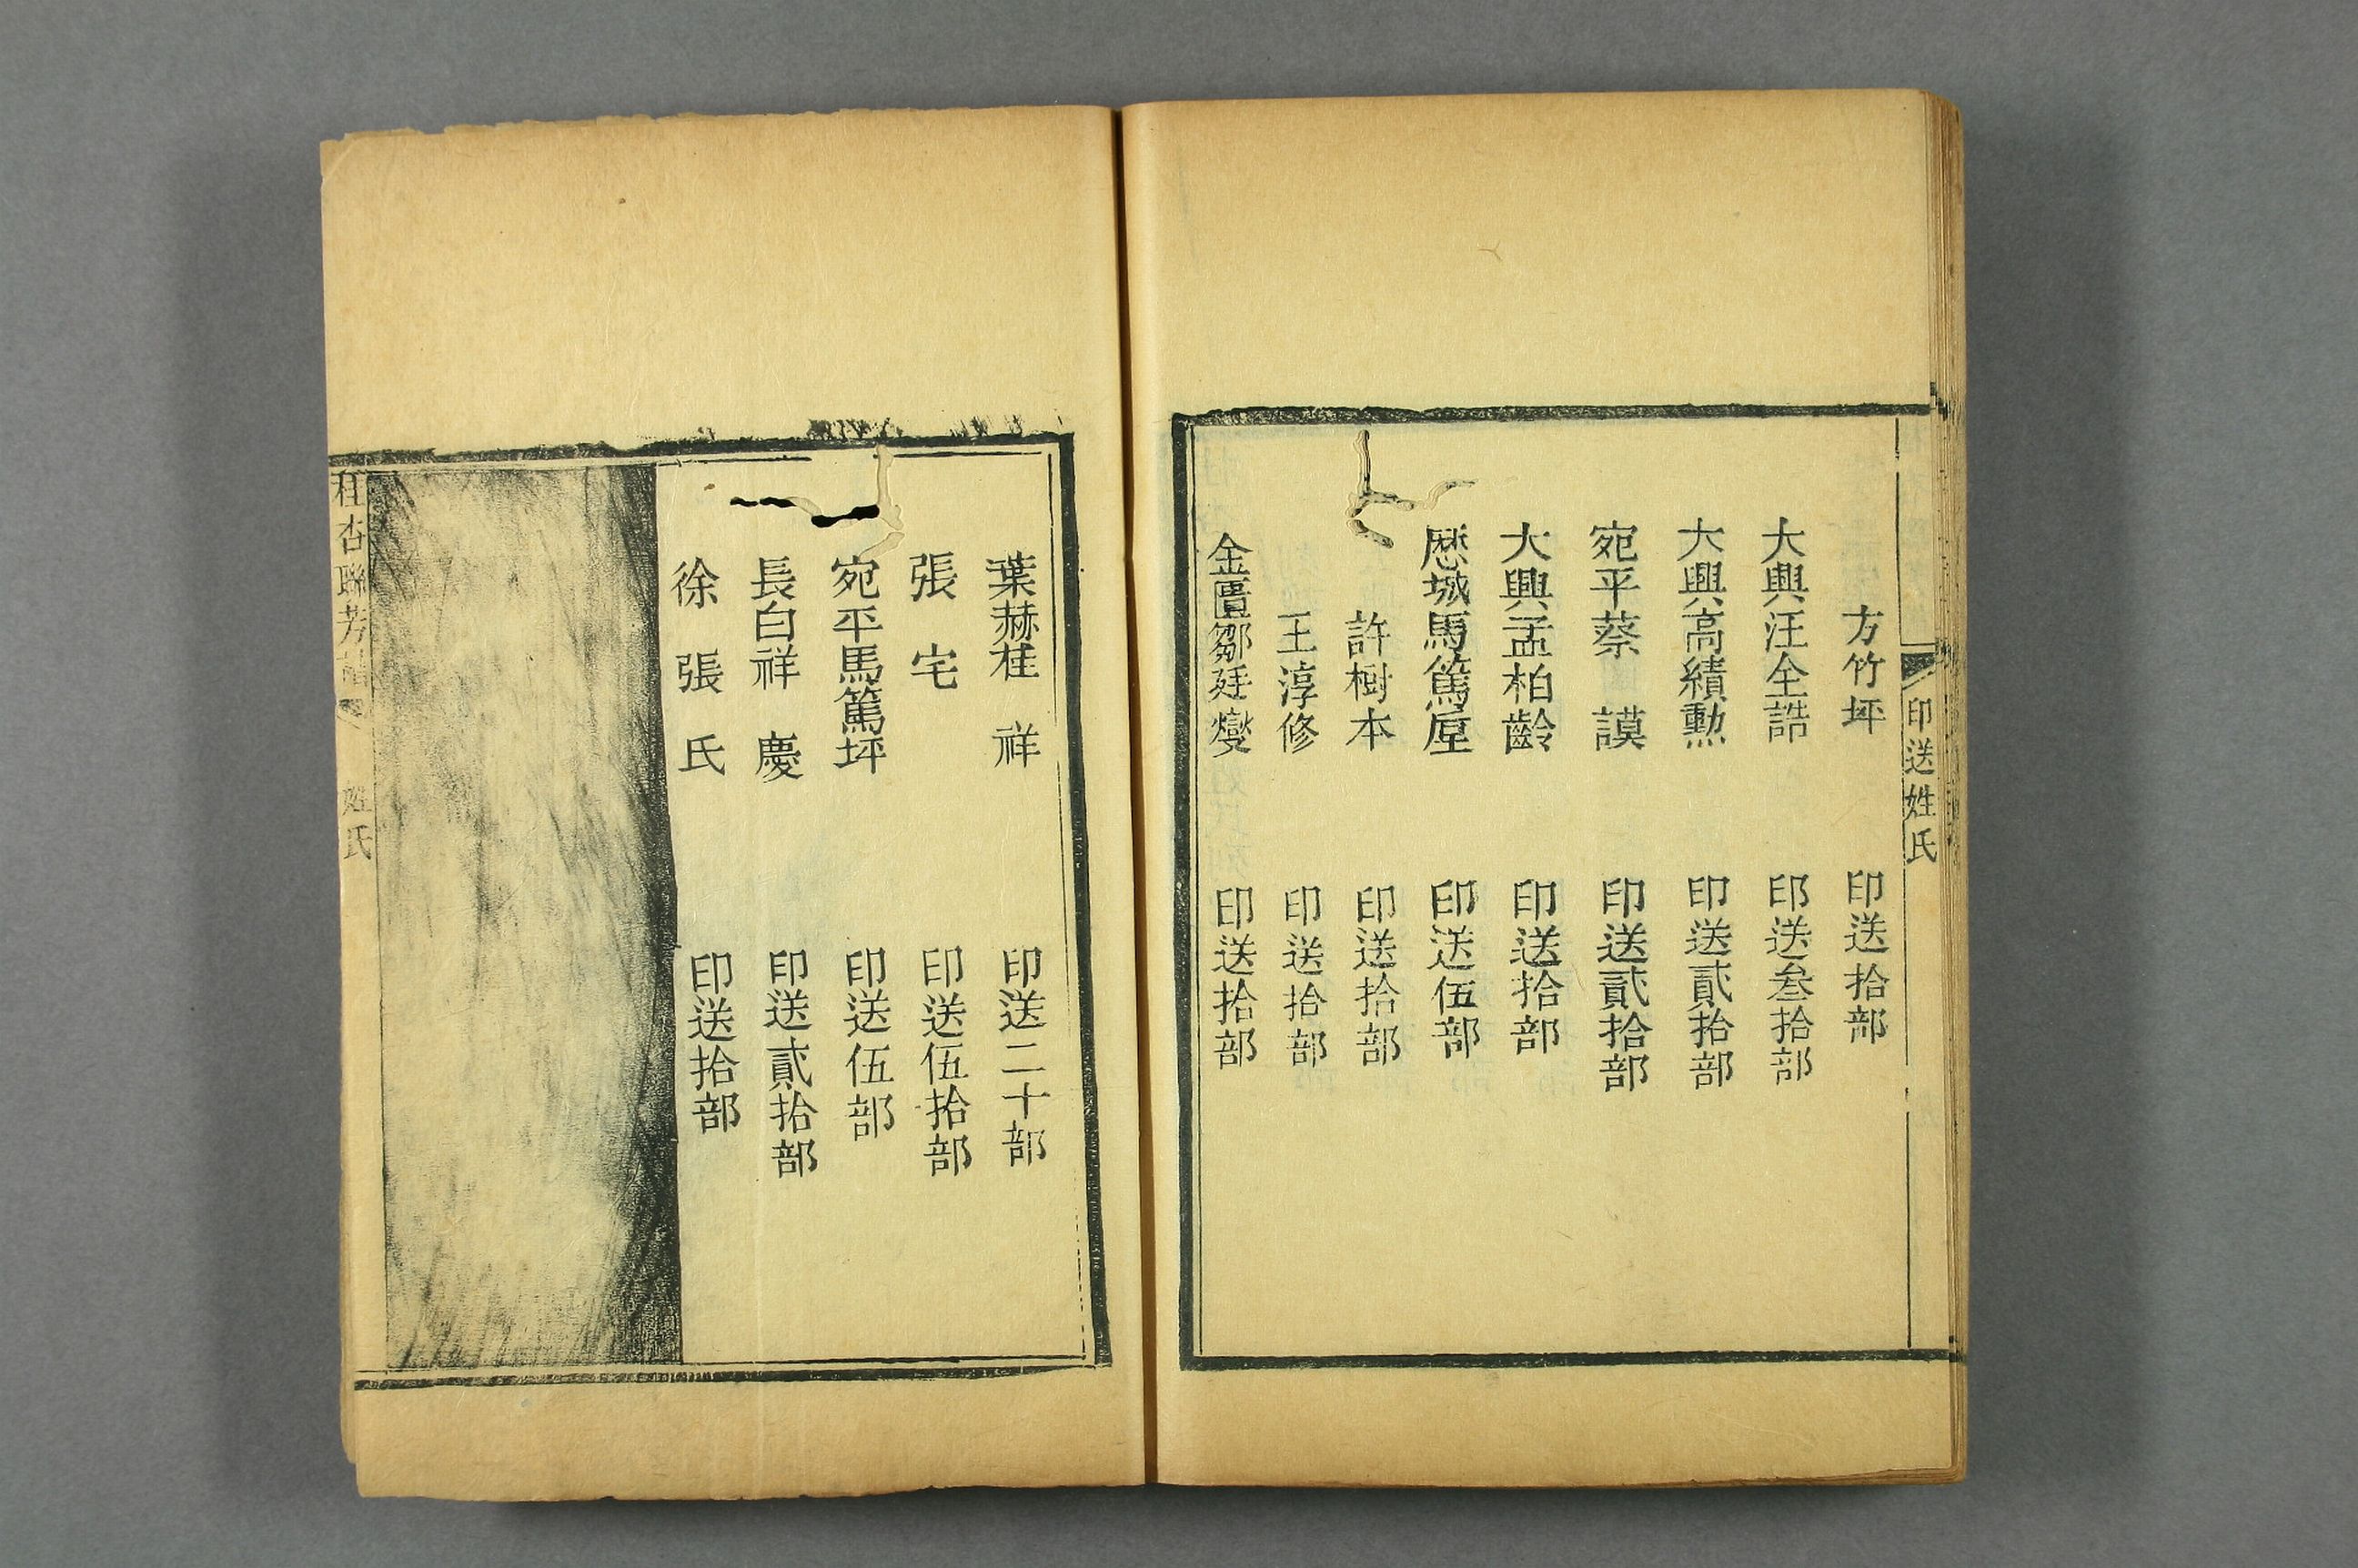 印送姓氏
方竹坪 印送拾部
大興汪全誥 印送叄拾部
大興高績勲 印送貳拾部
宛平蔡謨 印送貳拾部
大興孟柏齡 印送拾部
歷城馬篤厔 印送伍部
許樹本 印送拾部
王淳修 印送拾部
金匱鄒廷燮 印送拾部
葉赫桂祥 印送二十部
張宅 印送伍拾部
宛平馬篤坪 印送伍部
長白祥慶 印送貳拾部
徐張氏 印送拾部
桂杏聯芳 姓氏